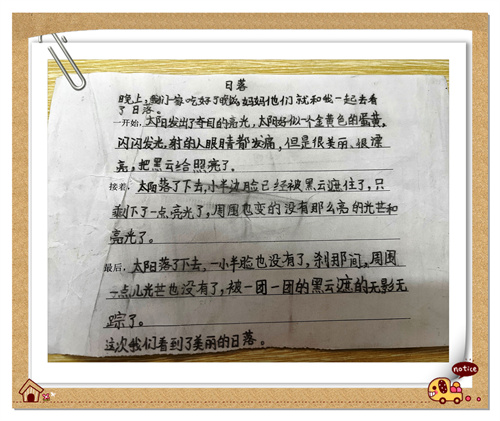 日落
晚上，我们一家吃好了晚饭妈妈他们就和我一起去看
了日落。
一开始，太阳发出了夺目的亮光，太阳好似一个金黄色的蛋黄，
闪闪发光，射的人眼睛都发痛，但是很美丽、很漂
亮，把黑云给照亮了。
接着，太阳落了下去，小半边脸已经被黑云遮住了，只
剩下了一点亮光了，周围也变的没有那么亮的光芒和
亮光了。
最后，太阳落了下去，一小半脸也没有了，刹那间，周围
一点儿光芒也没有了，被一团一团的黑云遮的无影无
踪了。
这次我们看到了美丽的日落。
notice